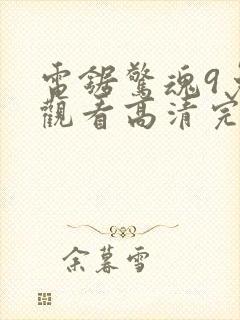 電鋸驚魂9免
觀看高清完
余暮雪